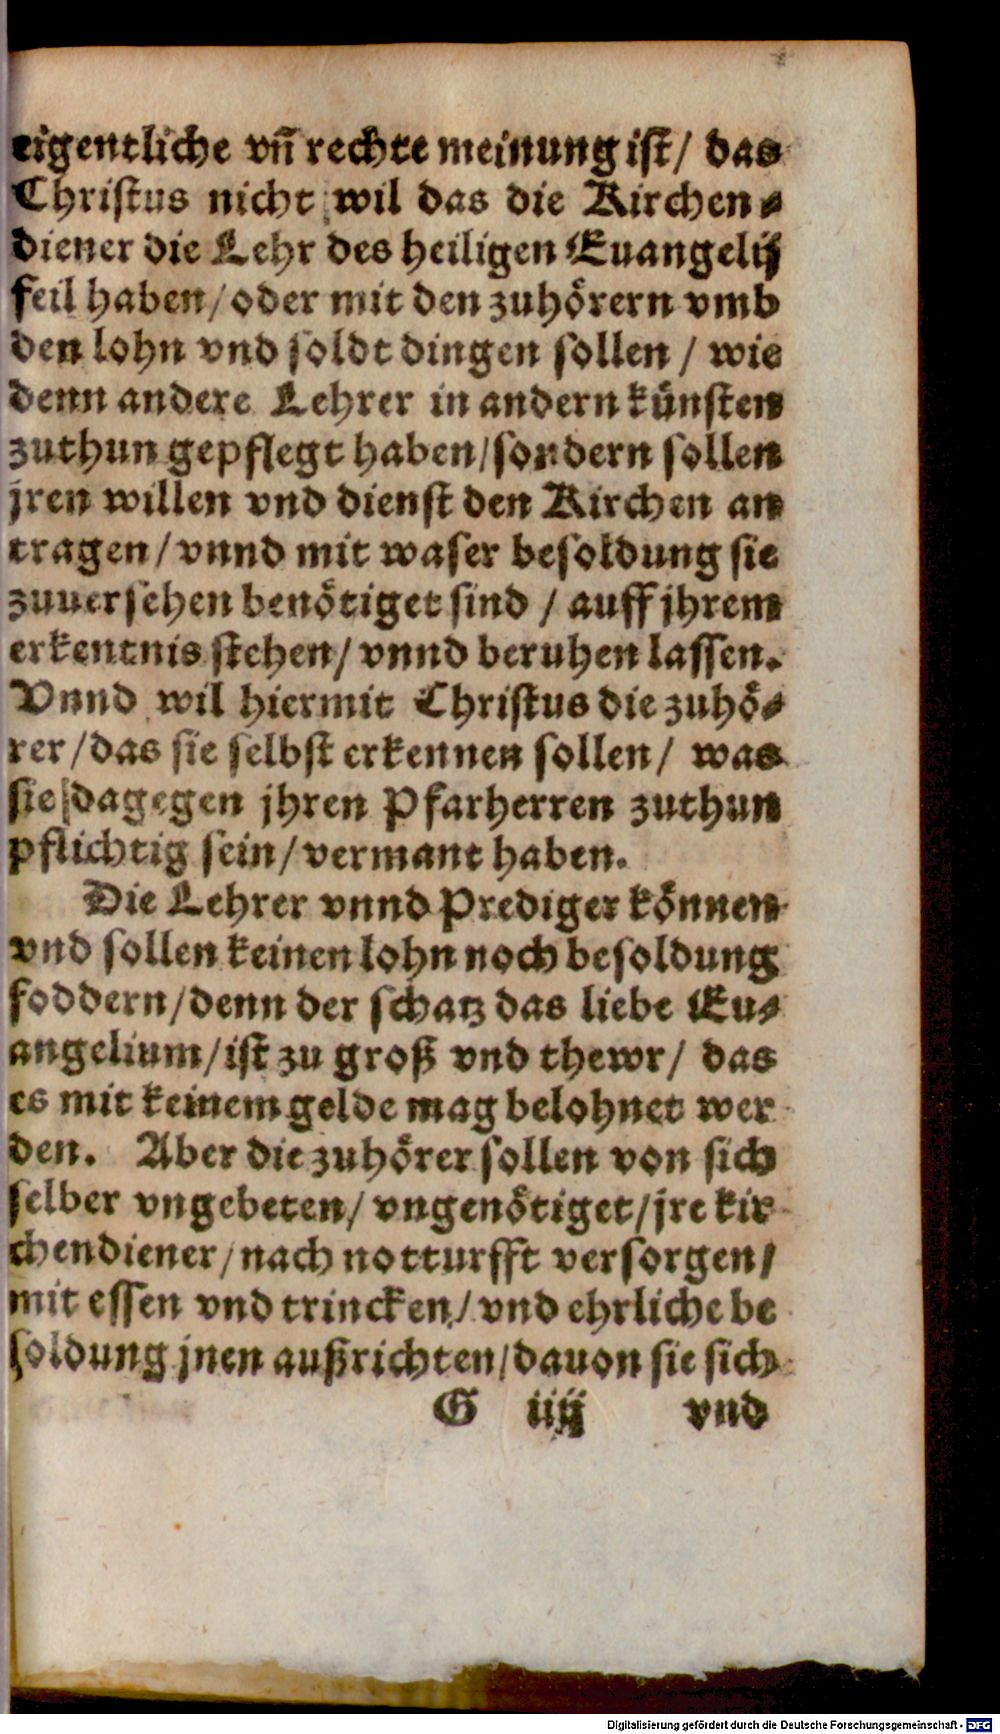 eigentliche vn̄ rechte meinung ist/ das
Christus nicht wil das die Kirchen⸗
diener die Lehr des heiligen Euangelij
feil haben/ oder mit den zuhörern vmb
den lohn vnd soldt dingen sollen / wie
denn andere Lehrer in andern künsten
zuthun gepflegt haben/ sondern sollen
jren willen vnd dienst den Kirchen an
tragen/ vnnd mit waser besoldung sie
zuuersehen benötiget sind / auff jhrem
erkentnis stehen/ vnnd beruhen lassen.
Vnnd wil hiermit Christus die zuhö⸗
rer/ das sie selbst erkennen sollen/ was
sie dagegen jhren Pfarherren zuthun
pflichtig sein/ vermant haben.
Die Lehrer vnnd Prediger können
vnd sollen keinen lohn noch besoldung
foddern/ denn der schatz das liebe Eu⸗
angelium/ ist zu groß vnd thewr/ das
es mit keinem gelde mag belohnet wer
den. Aber die zuhörer sollen von sich
selber vngebeten/ vngenötiget/ jre kir
chendiener/ nach notturfft versorgen/
mit essen vnd trincken/ vnd ehrliche be
soldung jnen außrichten/ dauon sie sich
G iiij vnd
Digitalisierung gefördert durch die Deutsche Forschungsgemeinschaft - DFG